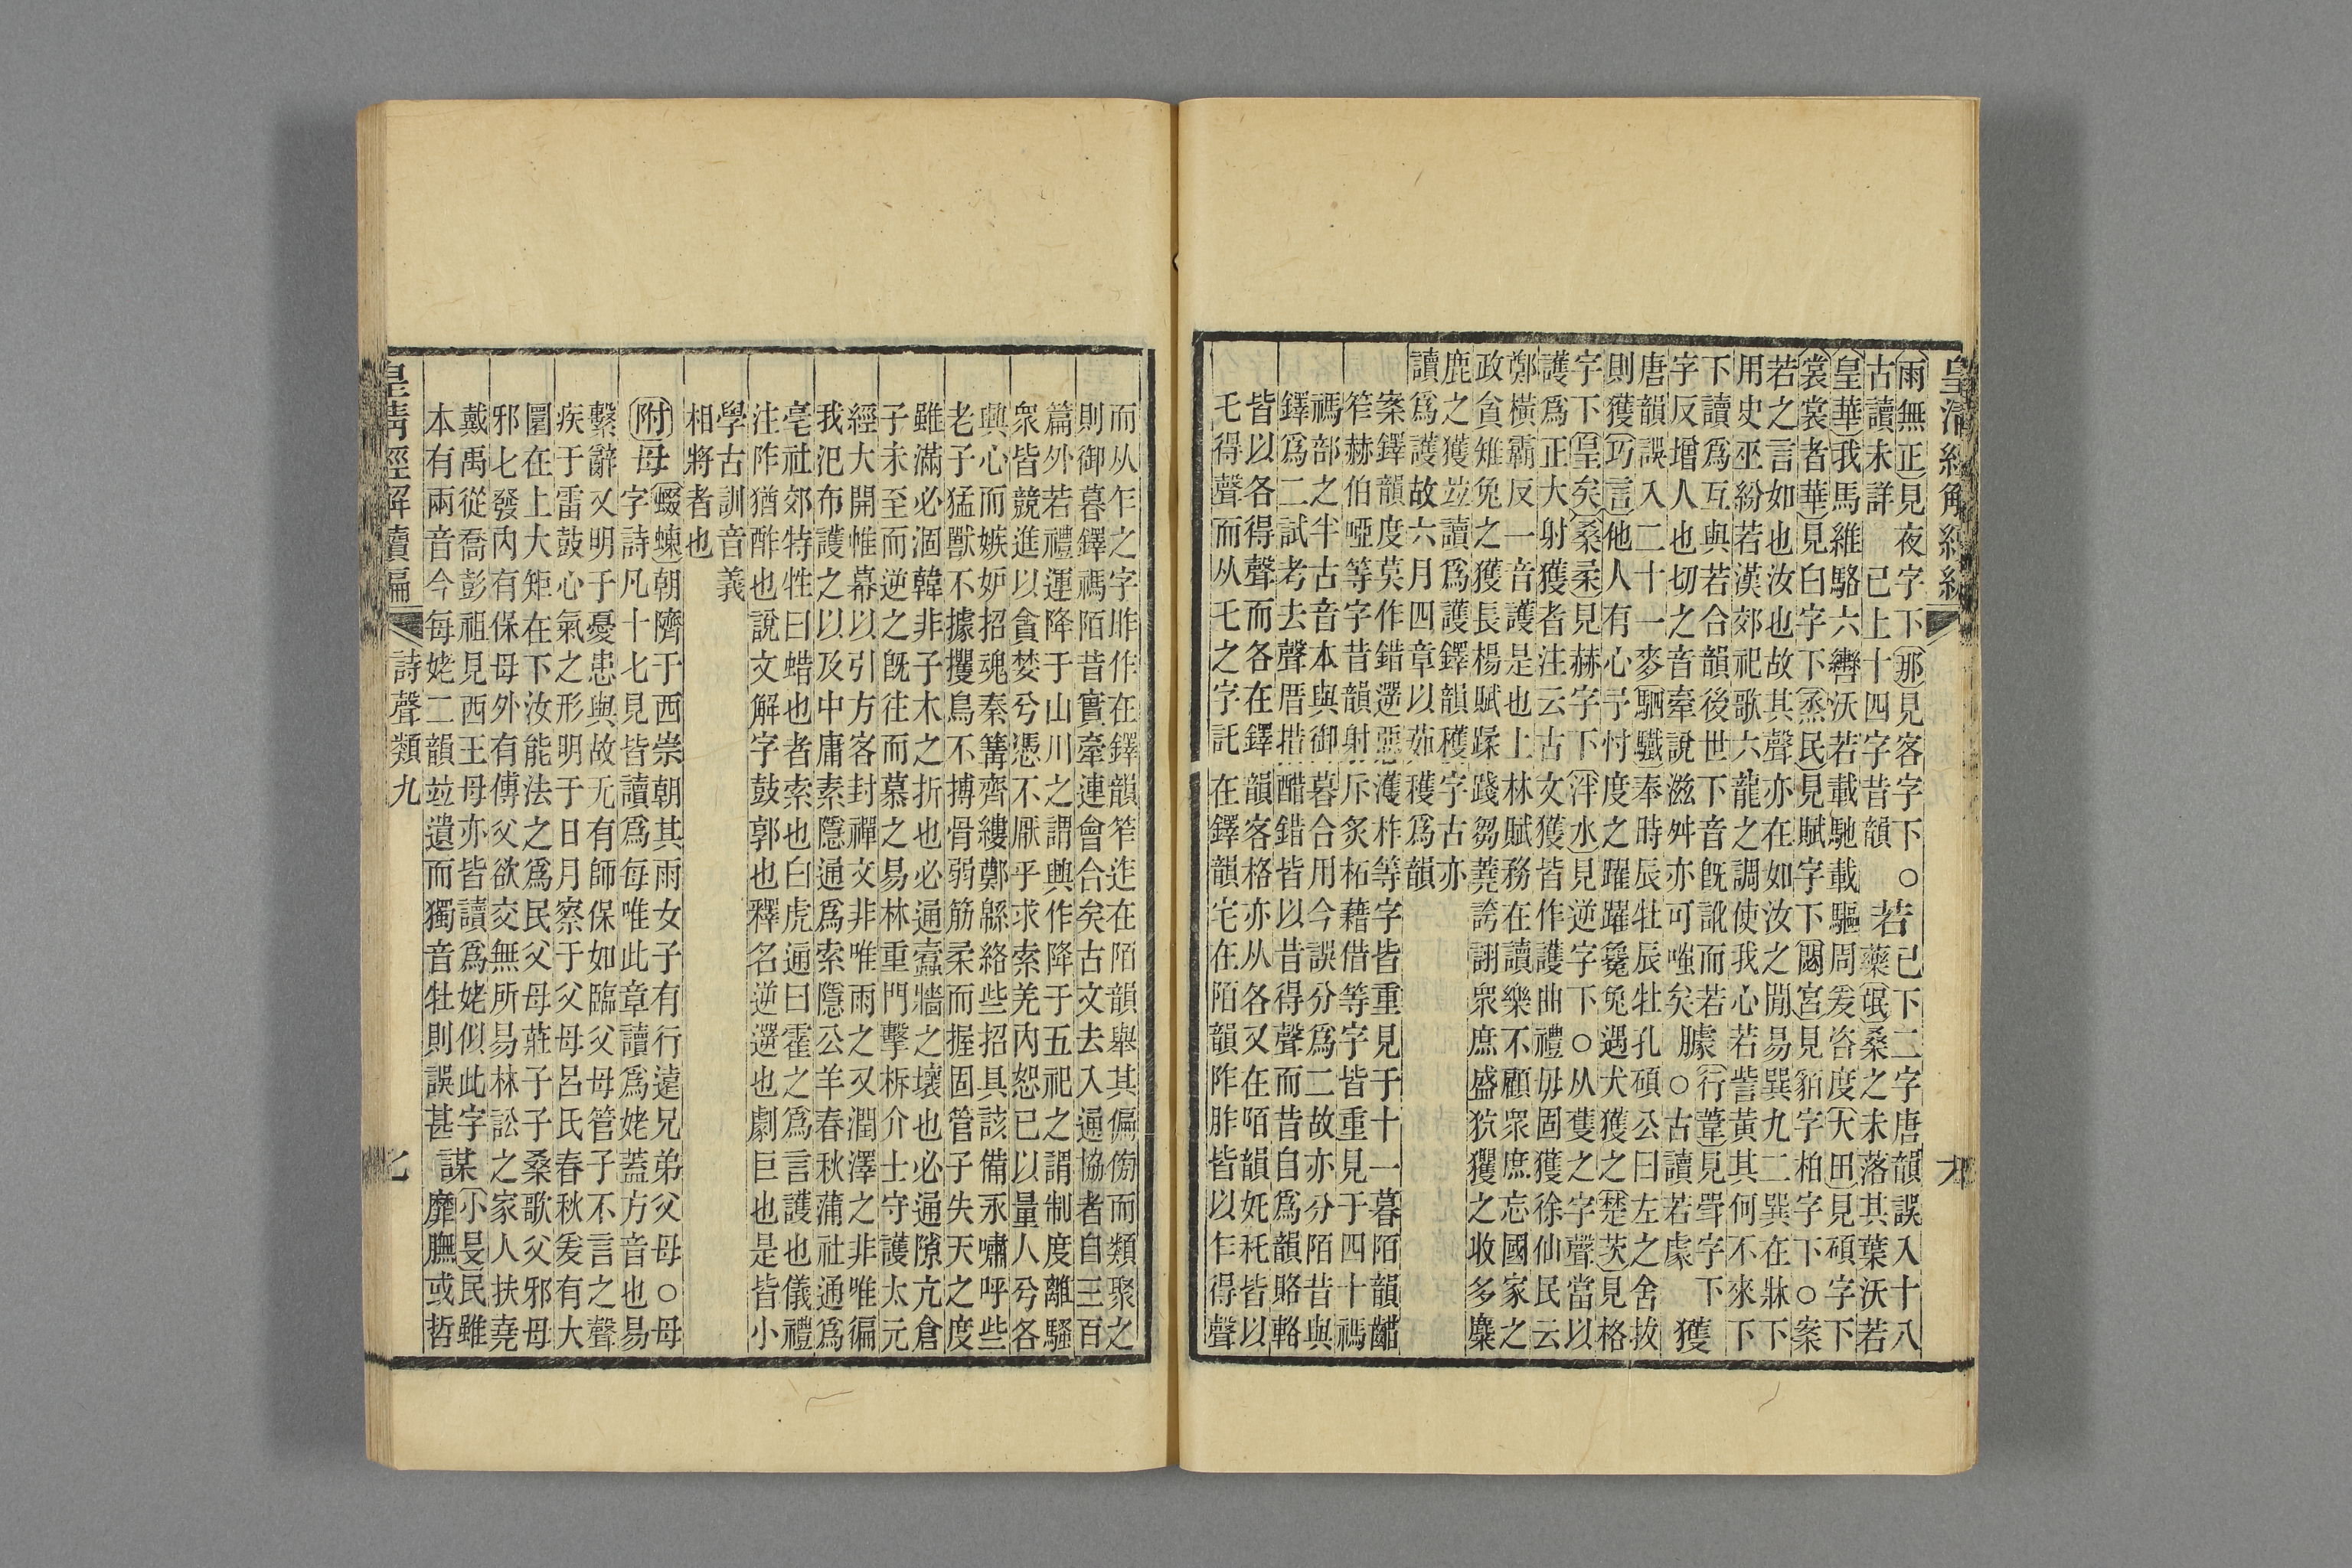 皇清經解續編
大
雨無正見夜字下那見客字下○若已下二字唐韻誤入十八
古讀未詳 已上十四字昔韻 藥氓桑之未落其葉沃若
皇華我馬維駱六轡沃若載馳載驅周爰咨度大田見碩字下
裳裳者華見白字下烝民見賦字下閟宮見貊字柏字下○案
若之言如也汝也故其聲亦在如汝之閒易巽九二巽在牀下
用史巫紛若漢郊祀歌六龍之調使我心若訾黃其何不來下
下讀爲互與若合韻後世下音旣訛而若 行葦見斝字下
字反增人也切之音牽說滋舛亦可嗤矣 臄○古讀若虡 獲
唐韻誤入二十一麥駟驖奉時辰牡辰牡孔碩公曰左之舍拔
則獲巧言他人有心予忖度之躍躍毚兔遇犬獲之楚茨見格
字下皇矣桑柔見赫字下泮水見逆字下○从隻之字聲當以
護爲正大射獲者注云古文獲皆作護曲禮毋固獲徐仙民云
鄭橫霸反一音護是也上林賦務在讀樂不顧衆庶忘國家之
政貪雉兔之獲長楊賦蹂踐芻蕘誇詡衆庶盛狖玃之收多麋
鹿之獲竝讀爲護鐸韻穫字古亦
讀爲護故六月四章以茹穫爲韻
案鐸韻度莫作錯選惡濩柞等字皆重見于十一暮陌韻齰
笮赫伯啞等字昔韻射斥炙柘藉借等字皆重見于四十禡
禡部之半古音本與御暮合用今誤分爲二故亦分陌昔與
鐸爲二試考去聲厝措醋錯皆以昔得聲而昔自爲韻賂輅
皆以各得聲而各在鐸韻客格亦从各又在陌韻奼秅皆以
乇得聲而从乇之字託在鐸韻宅在陌韻阼胙皆以乍得聲
而从乍之字昨作在鐸韻笮迮在陌韻舉其偏傍而類聚之
則御暮鐸禡陌昔實牽連會合矣古文去入通協者自三百
篇外若禮運降于山川之謂興作降于五祀之謂制度離騷
衆皆競進以貪婪兮憑不厭乎求索羌內恕已以量人兮各
興心而嫉妒招魂秦篝齊縷鄭緜絡些招具該備永嘯呼些
老子猛獸不據攫鳥不搏骨弱筋柔而握固管子失天之度
雖滿必涸韓非子木之折也必通蠹牆之壞也必通隙亢倉
子未至而逆之旣往而慕之易林重門擊柝介士守護太元
經大開帷幕以引方客封禪文非唯雨之又潤澤之非唯徧
我氾布護之以及中庸素隱通爲索隱公羊春秋蒲社通爲
亳社郊特牲曰蜡也者索也白虎通曰霍之爲言護也儀禮
注阼猶酢也說文解字鼓郭也釋名逆遻也劇巨也是皆小
學古訓音義
相將者也
附母 蝃蝀朝隮于西崇朝其雨女子有行遠兄弟父母○母
字詩凡十七見皆讀爲每唯此章讀爲姥蓋方音也易
繫辭又明于憂患與故无有師保如臨父母管子不言之聲
疾于雷鼓心氣之形明于日月察于父母呂氏春秋爰有大
圜在上大矩在下汝能法之爲民父母莊子子桑歌父邪母
邪七發內有保母外有傅父欲交無所易林訟之家人扶堯
戴禹從喬彭祖見西王母亦皆讀爲姥似此字 謀 小旻民雖
本有兩音今每姥二韻竝遺而獨音牡則誤甚 靡膴或哲
皇清經解續編
詩聲類九
七